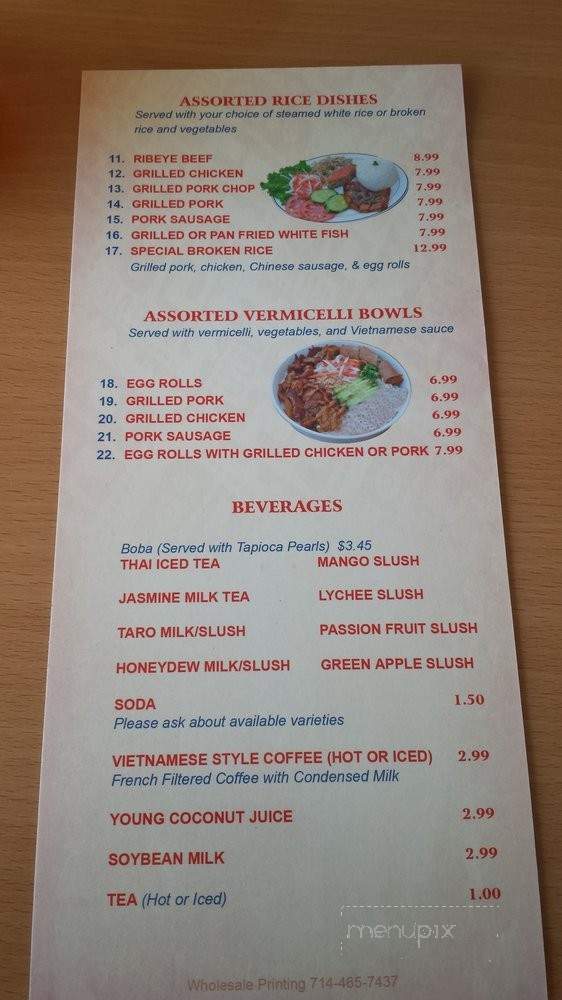 ASSORTED RICE DISHES
Served with your choice of steamed white rice or broken
rice and vegetables
11. RIBEYE BEEF 8.99
12. GRILLED CHICKEN 7.99
13. GRILLED PORK CHOP 7.99
14. GRILLED PORK 7.99
15. PORK SAUSAGE 7.99
16. GRILLED OR PAN FRIED WHITE FISH 7.99
17. SPECIAL BROKEN RICE 12.99
Grilled pork, chicken, Chinese sausage, & egg rolls
ASSORTED VERMICELLI BOWLS
Served with vermicelli, vegetables, and Vietnamese sauce
18. EGG ROLLS 6.99
19. GRILLED PORK 6.99
20. GRILLED CHICKEN 6.99
21. PORK SAUSAGE 6.99
22. EGG ROLLS WITH GRILLED CHICKEN OR PORK 7.99
BEVERAGES
Boba (Served with Tapioca Pearls) $3.45
THAI ICED TEA MANGO SLUSH
JASMINE MILK TEA LYCHEE SLUSH
TARO MILK/SLUSH PASSION FRUIT SLUSH
HONEYDEW MILK/SLUSH GREEN APPLE SLUSH
SODA 1.50
Please ask about available varieties
VIETNAMESE STYLE COFFEE (HOT OR ICED) 2.99
French Filtered Coffee with Condensed Milk
YOUNG COCONUT JUICE 2.99
SOYBEAN MILK 2.99
TEA (Hot or Iced) 1.00
menupix
Wholesale Printing 714-465-7437